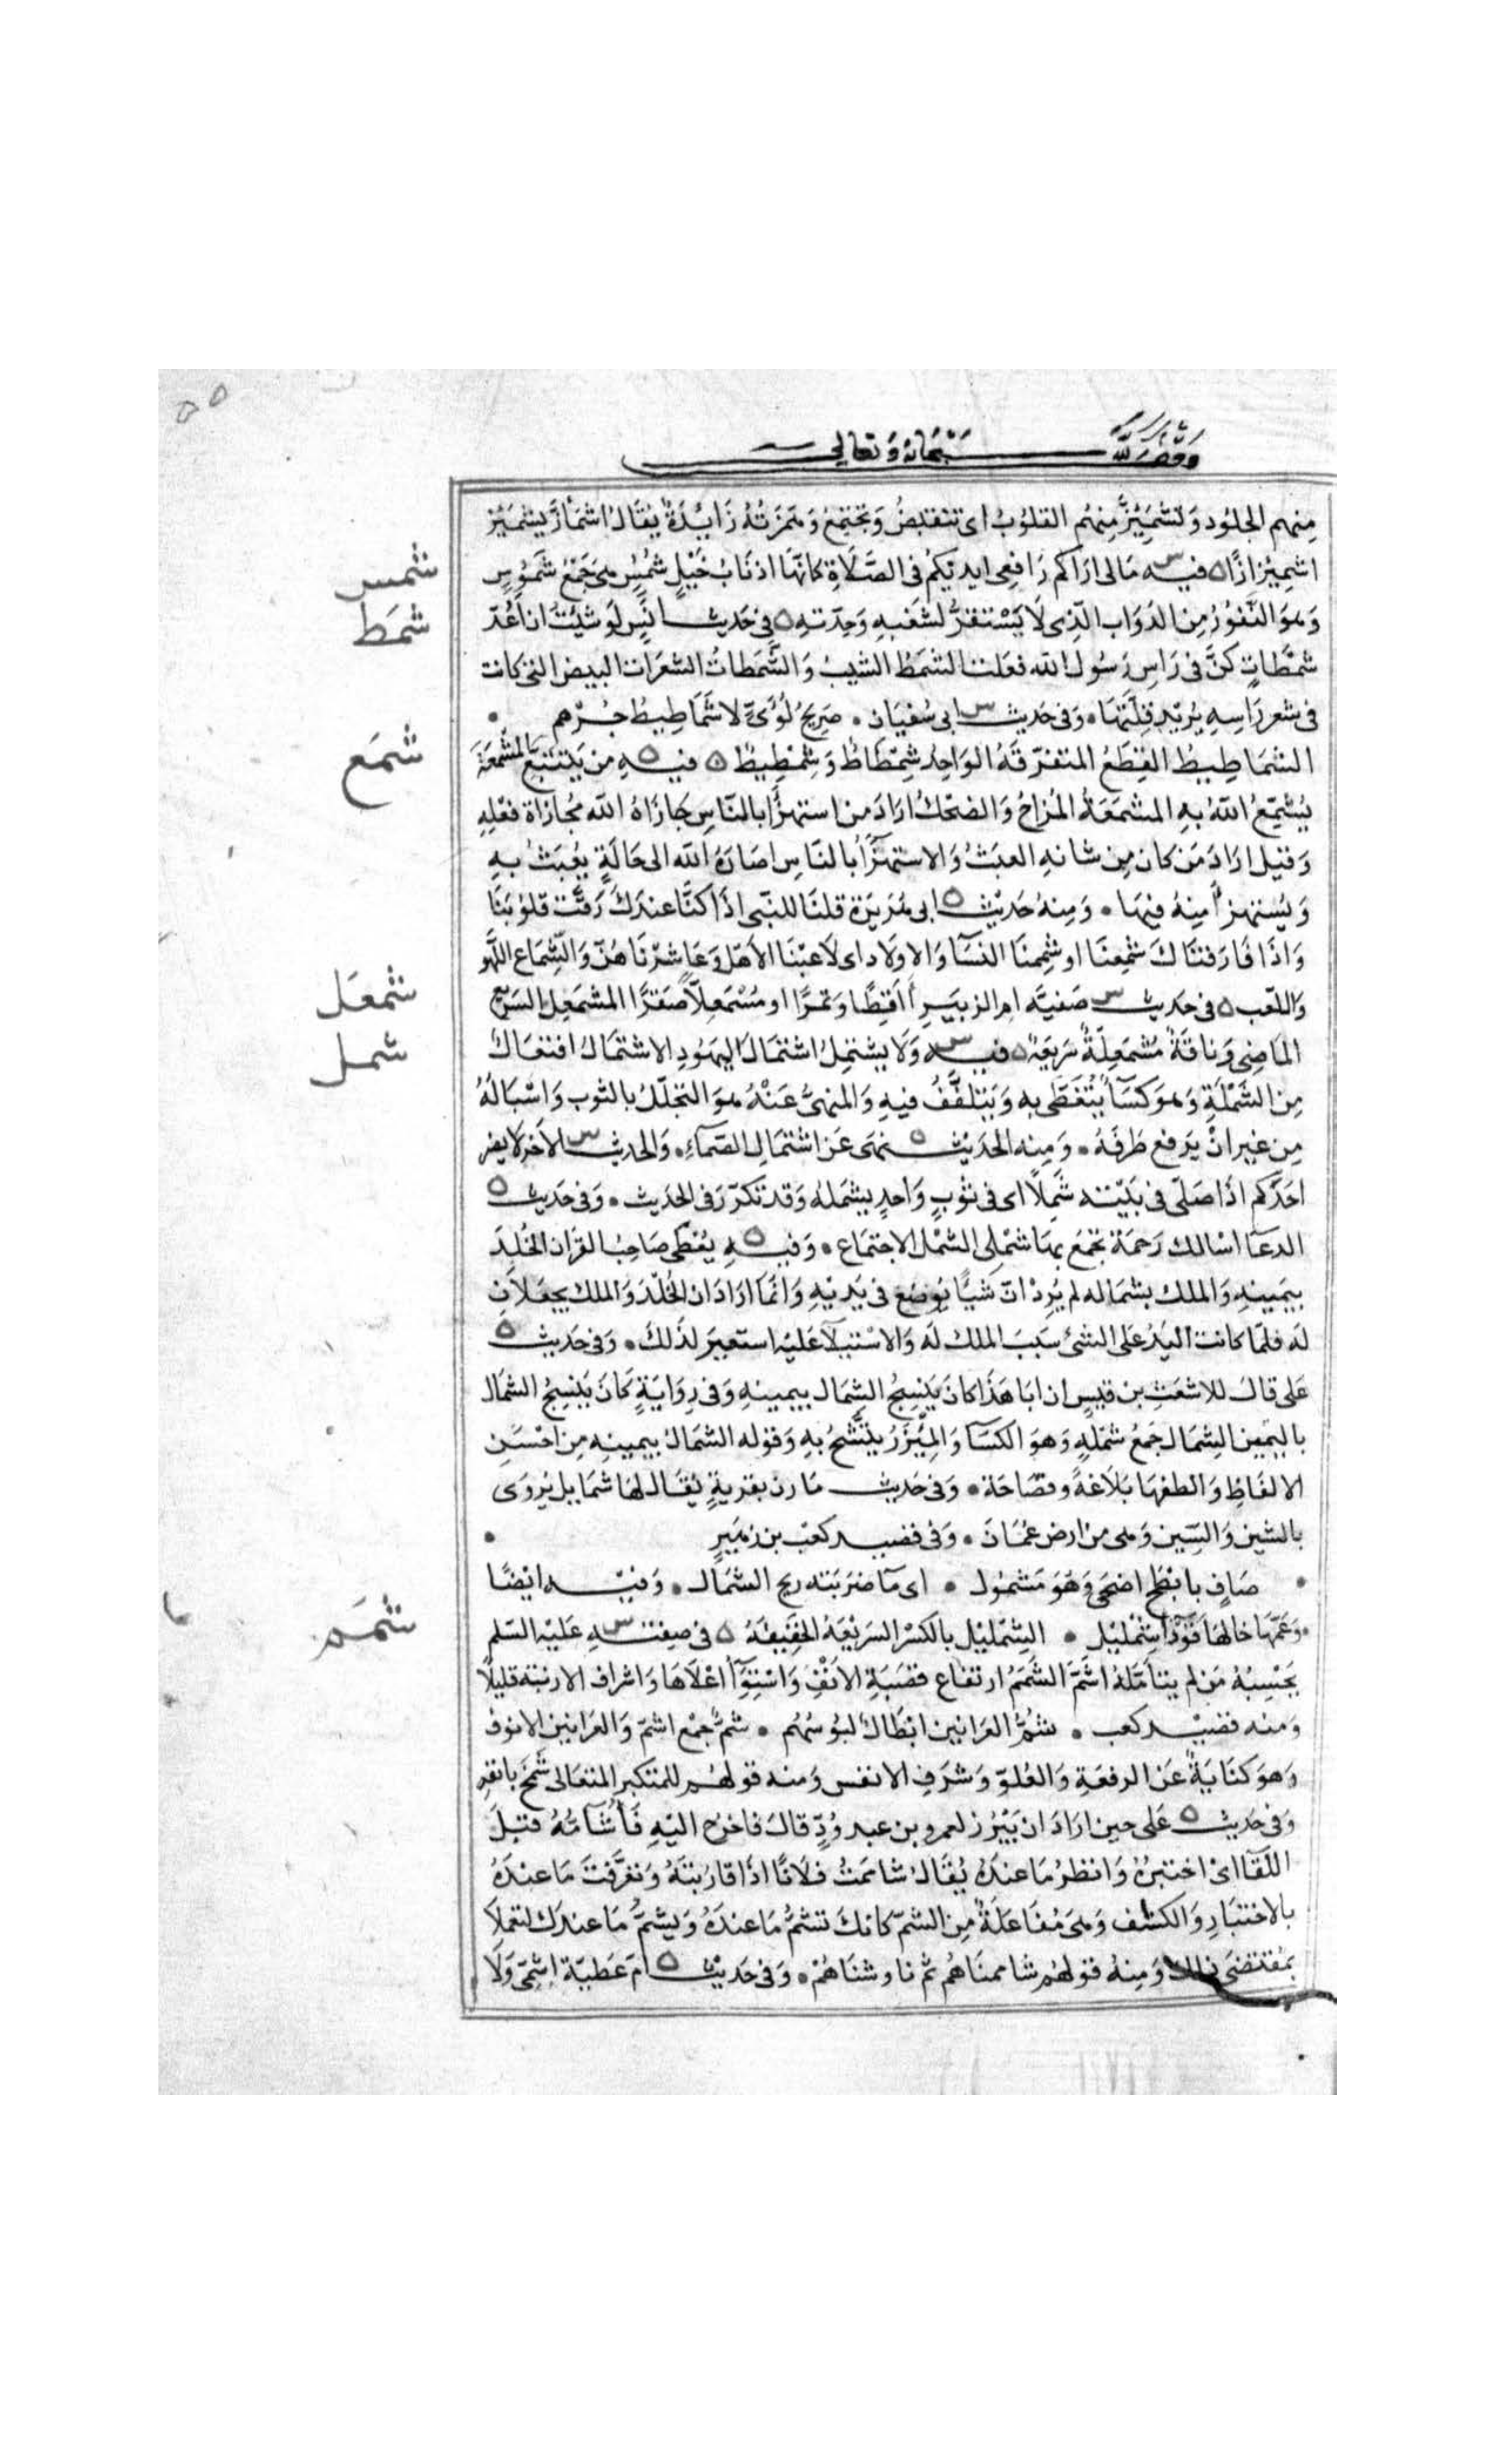 وقف لله سبحانه وتعالى
منهم الجلود وتشمئز منهم القلوب اى تتقبض وتجتمع وهمزته زايدة يقال اشمأز يشمئز
شمس
اشمئزازا ه فيه س مالى اراكم رافعى ايديكم فى الصلاة كانها اذناب خيل شمس هى جمع شموس
شمط
وهو النفور من الدواب الذى لا يستقر لشغبه وحدته ه فى حديث انس لو شئت ان اعد
شمطات كن فى راس رسول الله فعلت الشمط الشيب والشمطات الشعرات البيض التى كانت
فى شعر راسه يريد قلتها • وفى حديث س ابى سفيان • صريح لؤى لا شماطيط جرهم •
شمع
الشماطيط القطع المتفرقه الواحد شمطاط وشمطيط ه فيه ه من يتتبع المشمعة
يشمع الله به المشمعة المزاح والضحك اراد من استهزأ بالناس جازاه الله مجازاة فعله
وقيل اراد من كان من شانه العبث والاستهزأ بالناس اصاره الله الى حالة يعبث به
ويستهزأ منه فيها • ومنه حديث ه ابى هريرة قلنا للنبى اذا كنا عندك رقت قلوبنا
واذا فارقناك شمعنا او شممنا النسآ والاولاد اى لاعبنا الاهل وعاشرناهن والشماع اللهو
شمعل
واللعب ه فى حديث س صفيه ام الزبير أاقطا وتمرا او مشمعلا صقرا المشمعل السريع
شمل
الماضى وناقة مشمعلة سريعة ه فيه س ولا يشتمل اشتمال اليهود الاشتمال افتعال
من الشملة وهو كسآ يتغطى به ويتلفف فيه والمنهى عنه هو التجلل بالثوب واسباله
من غير ان يرفع طرفه • ومنه الحديث ه نهى عن اشتمال الصماء • والحديث س الاخر لا يضر
احدكم اذا صلى فى بيته شملا اى فى ثوب واحد يشمله وقد تكرر فى الحديث • وفى حديث ه
الدعآ اسالك رحمة تجمع بها شملى الشمل الاجتماع • وفيه ه يعطى صاحب القران الخلد
بيمينه والملك بشماله لم يرد ان شيأ يوضع فى يديه وانما اراد ان الخلد والملك يجعلان
له فلما كانت اليد على الشئ سبب الملك له والاستيلآ عليه استعير لذلك • وفى حديث ه
على قال للاشعث بن قيس ان ابا هذا كان ينسج الشمال بيمينه وفى رواية كان ينسج الشمال
باليمين الشمال جمع شملة وهو الكسآ والميزر يتشح به وقوله الشمال بيمينه من احسن
الالفاظ والطفها بلاغة وفصاحة • وفى حديث مازن بقرية يقال لها شمايل يروى
بالشين والسين وهى من ارض عمان • وفى قصيد كعب بن زهير •
• صاف بابطح اضحى وهو مشمول • اى مآ ضربته ريح الشمال • وفيه ايضا
شمم
• وعمها خالها قودآ شمليل • الشمليل بالكسر السريعه الخفيفه ه فى صفته س عليه السلم
يحسبه من لم يتأمله اشم الشمم ارتفاع قصبة الانف واستوآ اعلاها واشراف الارنبه قليلا
ومنه قصيد كعب • شم العرانين ابطال لبوسهم • شم جمع اشم والعرانين الانوف
وهو كناية عن الرفعة والعلو وشرف الانفس ومنه قولهم للمتكبر المتعالى شمخ بانفه
وفى حديث ه على حين اراد ان يبرز لعمرو بن عبد ود قال فاخرج اليه فأشآمه قبل
اللقآ اى اختبره وانظر ما عنده يقال شاممت فلانا اذا قاربته وتعرفت ما عنده
بالاختبار والكشف وهى مفاعلة من الشم كانك تشم ما عنده ويشم ما عندك لتعملا
بمقتضى ذلك ومنه قولهم شاممناهم ثم ناوشناهم • وفى حديث ه ام عطية اشمى ولا